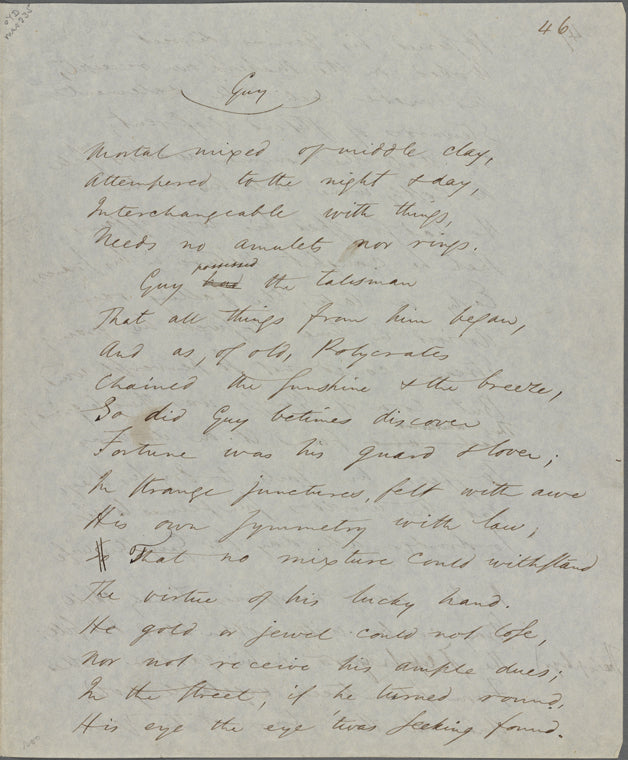 46
Guy.
Mortal mixed of middle clay,
Attempered to the night & day,
Interchangeable with things,
Needs no amulets nor rings.
possessed
Guy had the talisman
That all things from him began,
And as, of old, Polycrates
Chained the sunshine & the breeze,
So did Guy betimes discover
Fortune was his guard & lover;
In strange junctures, felt with awe
His own symmetry with law;
That no mixture could withstand
The virtue of his lucky hand.
He gold or jewel could not lose,
Nor not receive his ample dues;
In the street, if he turned round,
His eye the eye 'twas seeking found.